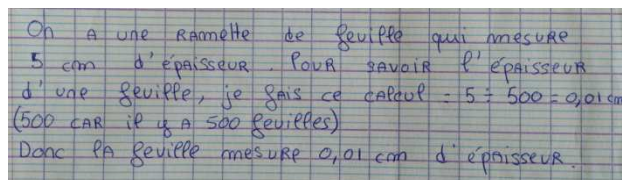 On A une RAmette de feuille qui mesure
5 cm d'épAisseuR. PouR sAvoiR l'épAisseuR
d'une feuille, je fAis ce cAlcul = 5 ÷ 500 = 0,01 cm
(500 CAR il y A 500 feuilles)
Donc lA feuille mesuRe 0,01 cm d'épAisseuR.